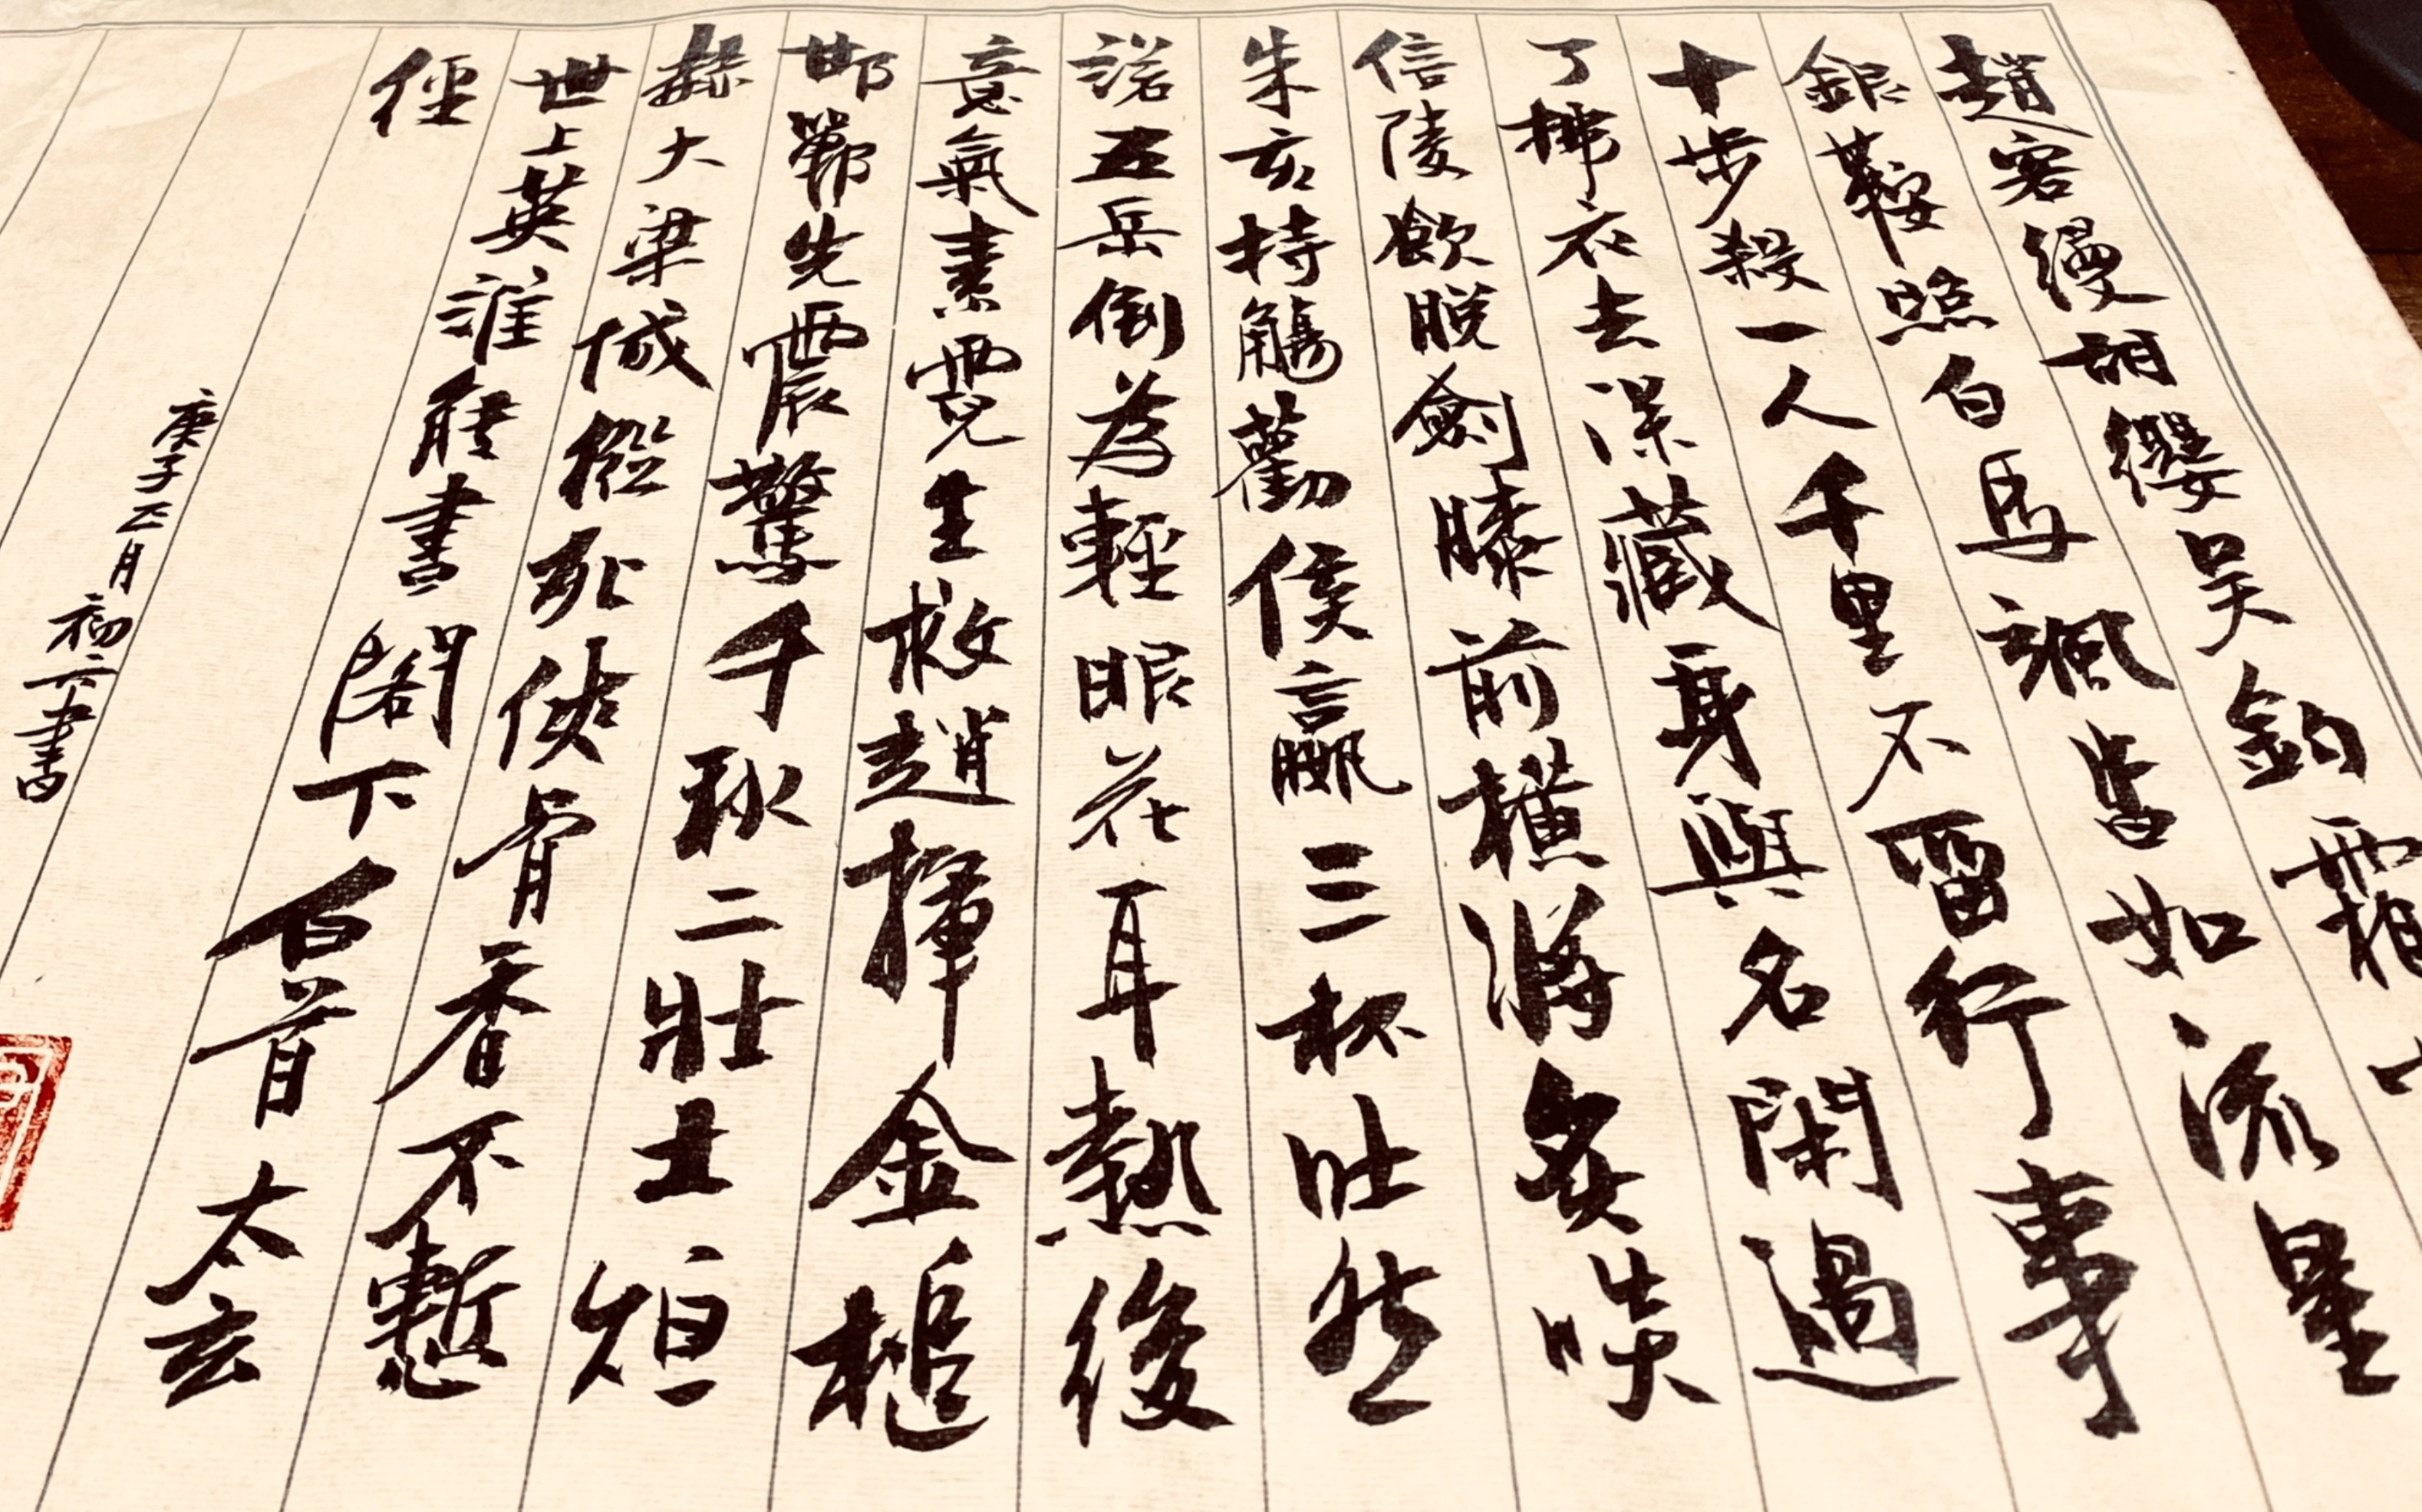 趙客縵胡纓吳鈎霜
銀鞍照白馬颯沓如流星
十步殺一人千里不留行事
了拂衣去深藏身與名閑過
信陵飲脫劍膝前橫將炙啖
朱亥持觴勸侯嬴三杯吐然
諾五岳倒為輕眼花耳熱後
意氣素霓生救趙揮金槌
邯鄲先震驚千秋二壯士烜
赫大梁城縱死俠骨香不慚
世上英誰能書閣下白首太玄
經
庚子正月初六書